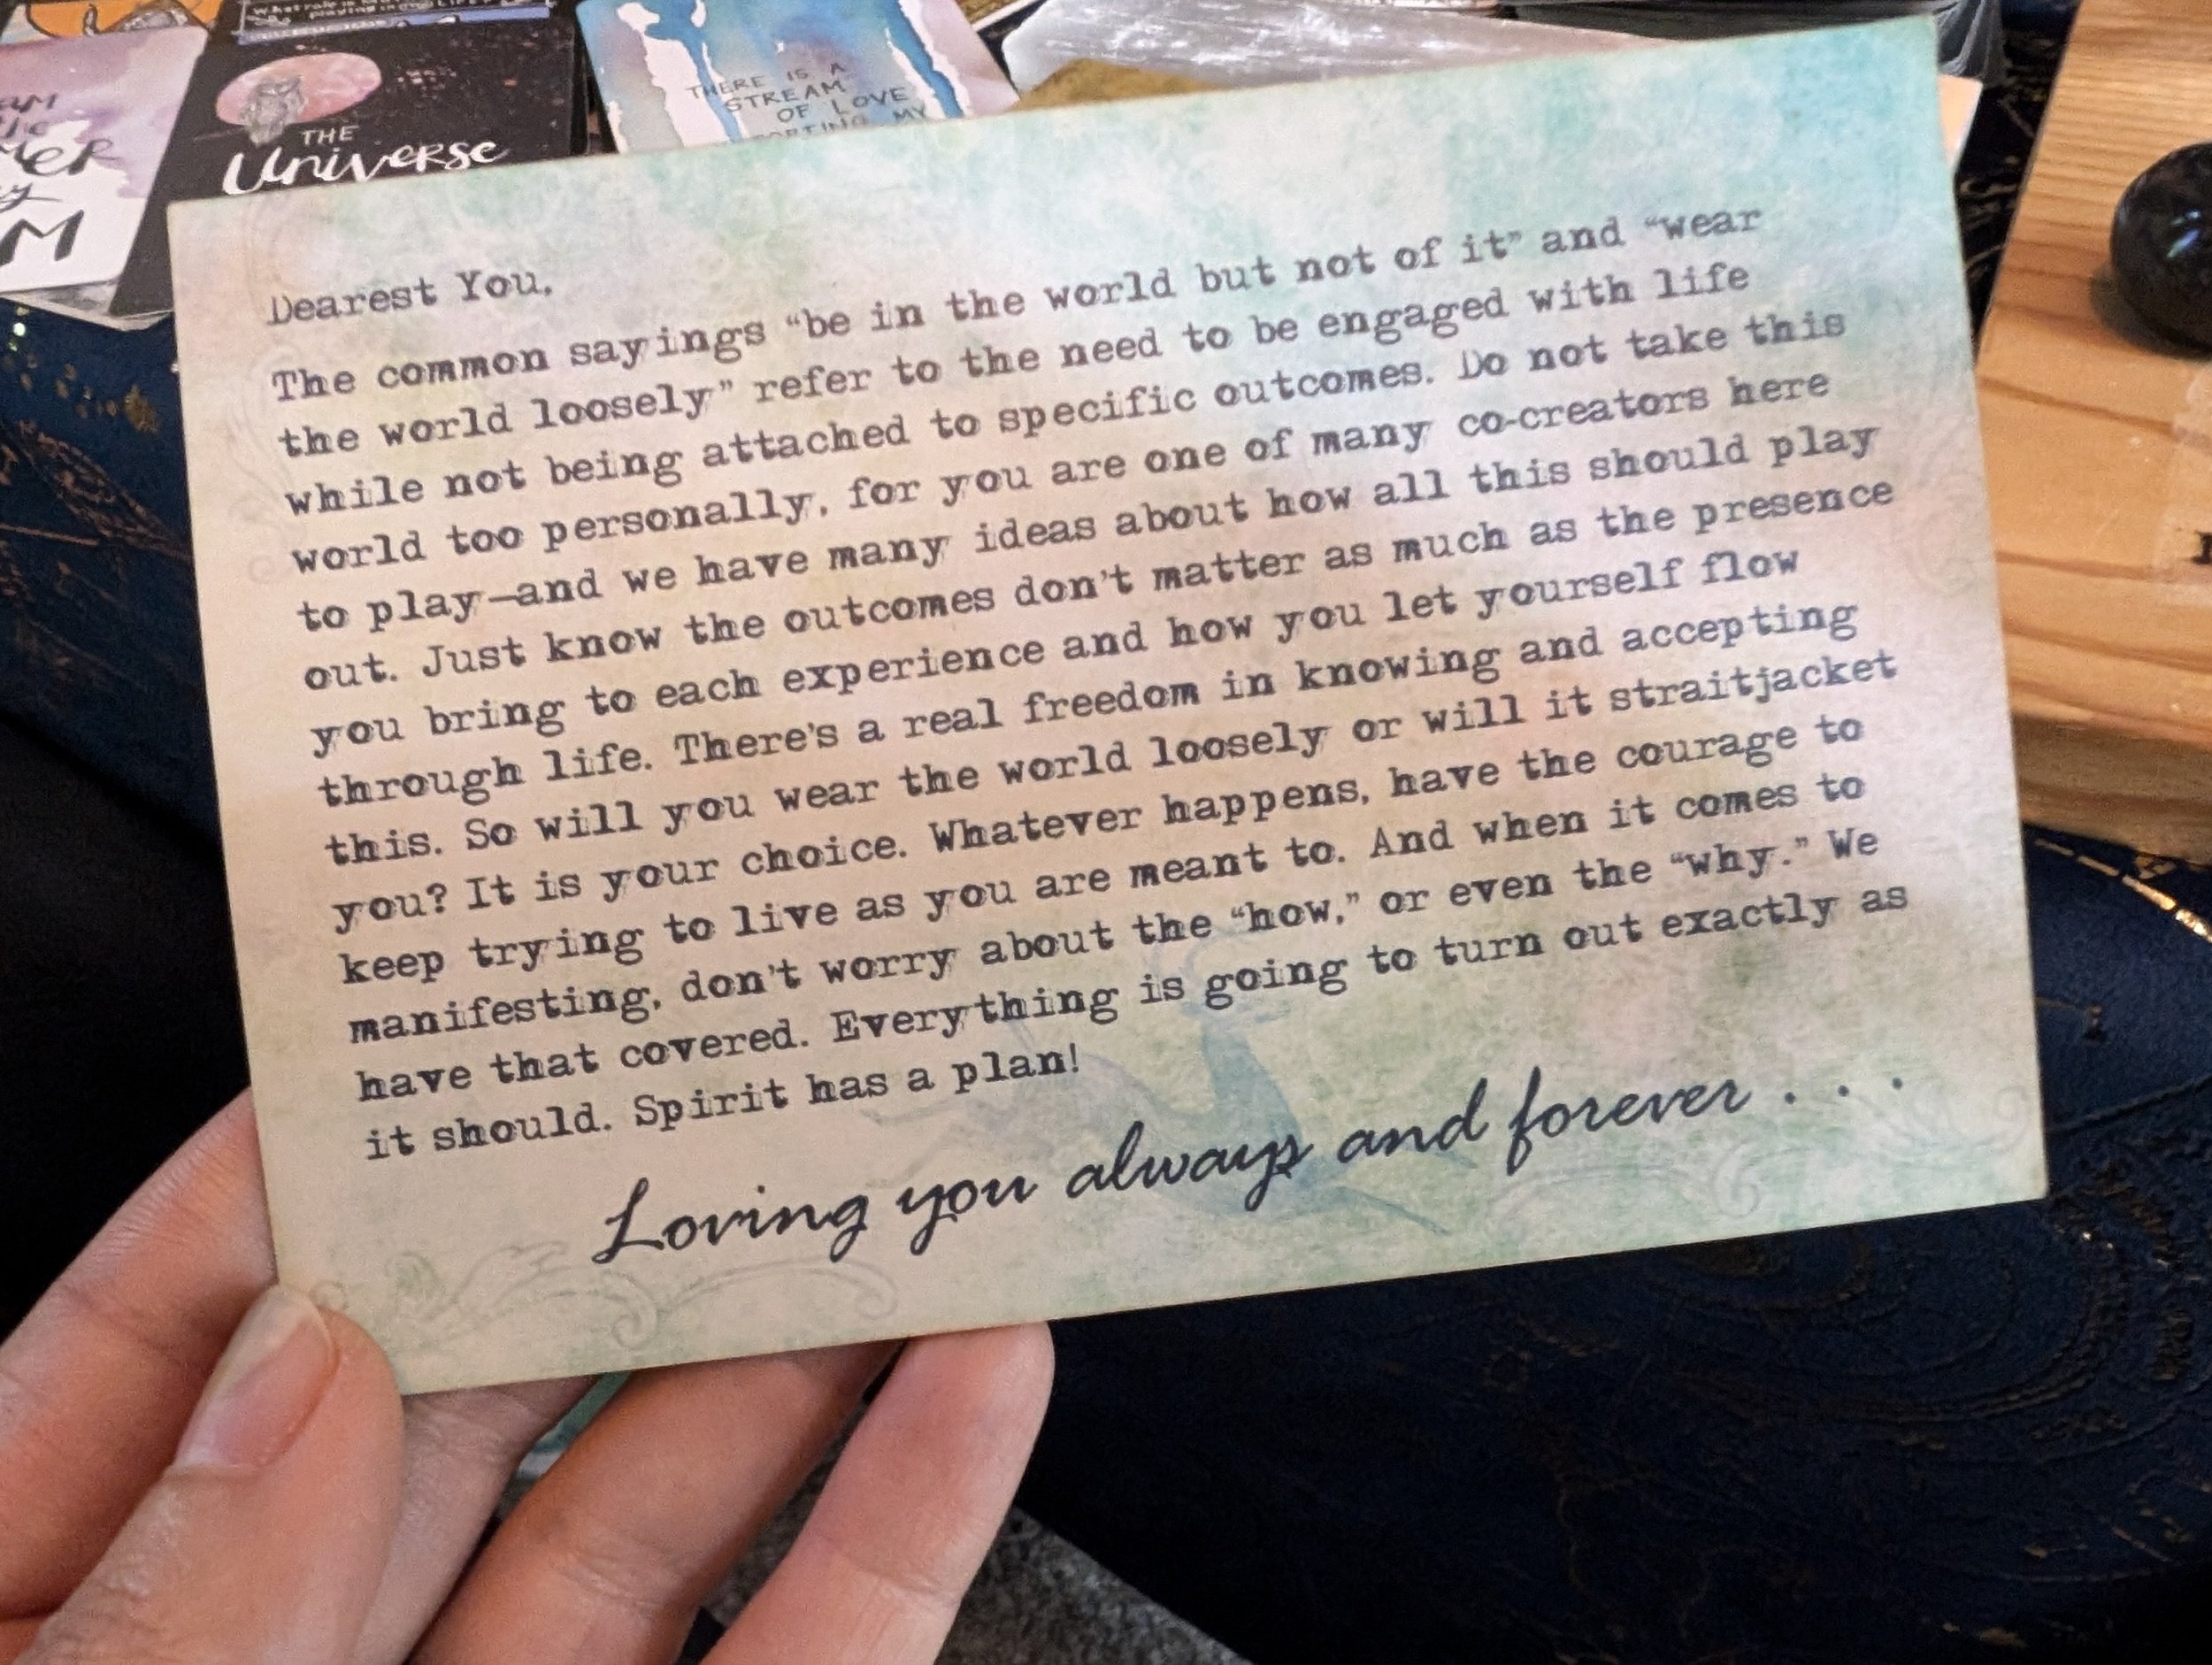 What role is
playing in
THE
Universe
M
THERE IS A
STREAM
OF LOVE
MY
Dearest You,
The common sayings “be in the world but not of it” and “wear
the world loosely” refer to the need to be engaged with life
while not being attached to specific outcomes. Do not take this
world too personally, for you are one of many co-creators here
to play—and we have many ideas about how all this should play
out. Just know the outcomes don’t matter as much as the presence
you bring to each experience and how you let yourself flow
through life. There’s a real freedom in knowing and accepting
this. So will you wear the world loosely or will it straitjacket
you? It is your choice. Whatever happens, have the courage to
keep trying to live as you are meant to. And when it comes to
manifesting, don’t worry about the “how,” or even the “why.” We
have that covered. Everything is going to turn out exactly as
it should. Spirit has a plan!
Loving you always and forever . . .